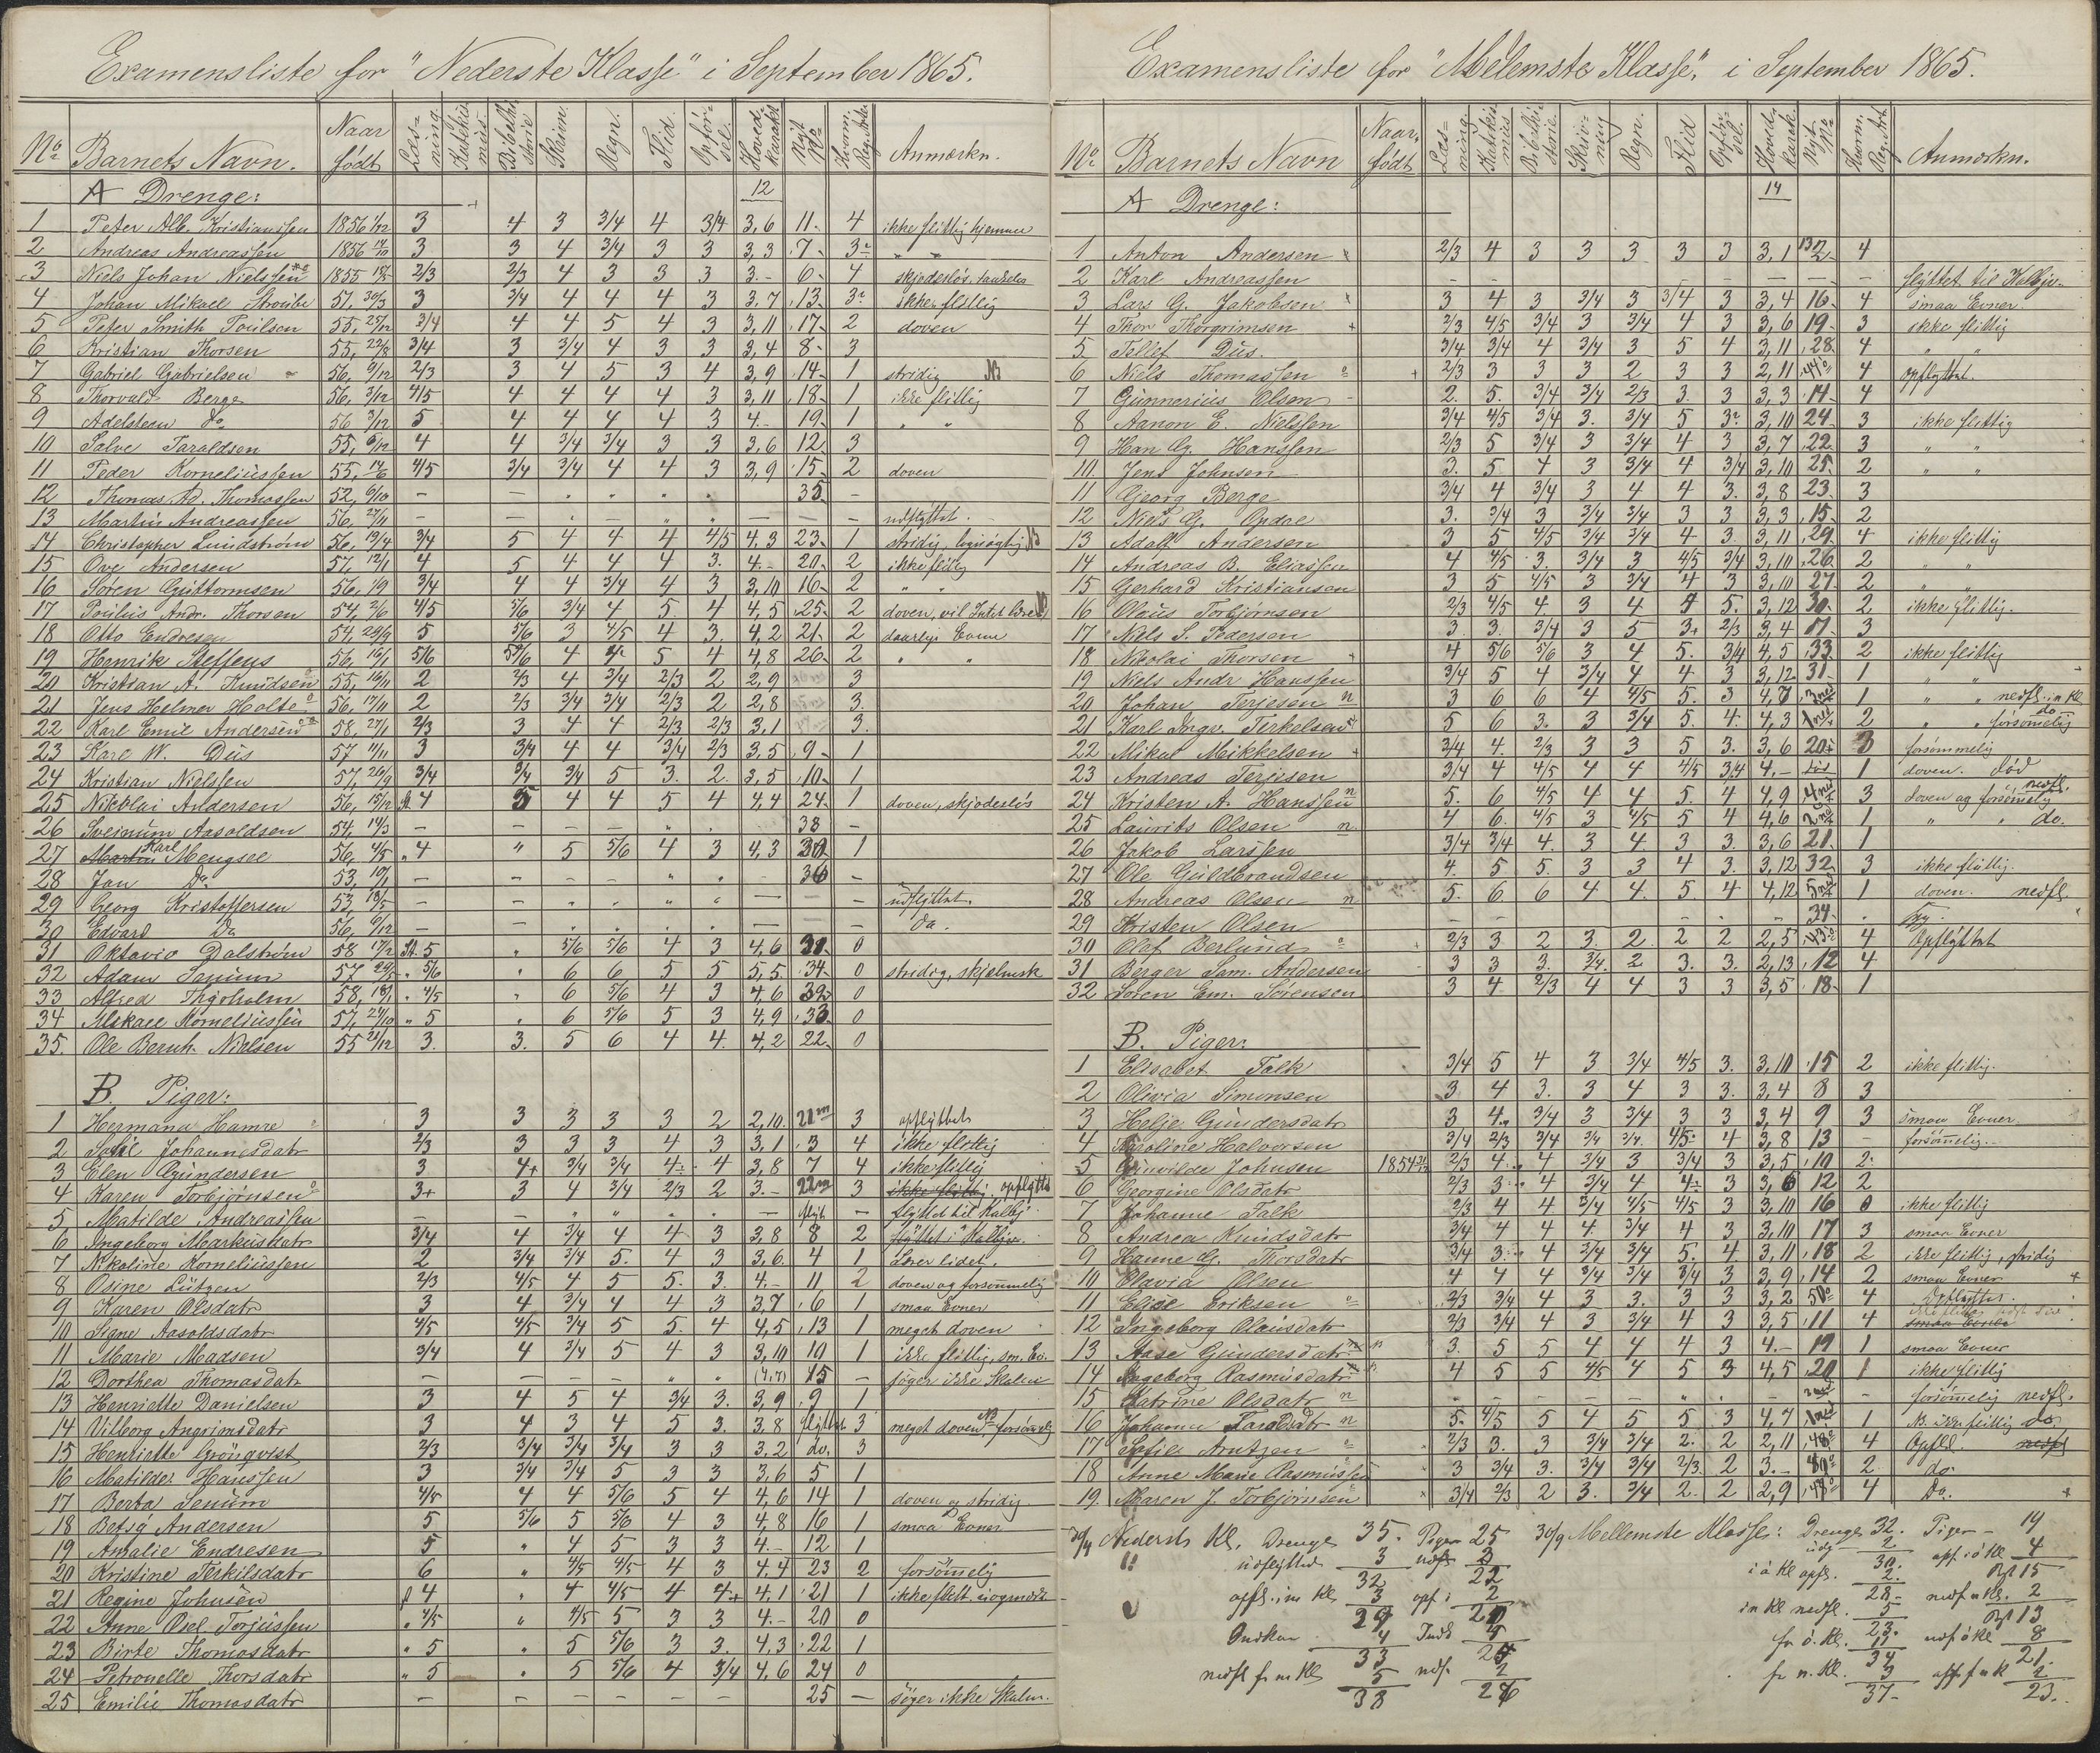 Examensliste for "Nederste Klasse" i September 1865.
No Barnets Navn. Naar født Læsning. Katekismus. Bibelhistorie Skrivn. Regn. Flid. Opførsel. Hovedkarakt. Nyt No Hvorm. Reg. Art Anmærkn.
A Drenge: 12
1 Peter Alb. Kristianssen 1856 3 4 3 3/4 4 3/4 3,6 11 4 ikke flittig hjemme
2 Andreas Andreassen 1856 3 3 4 3/4 3 3 3,3 7 3 " "
3 Niels Johan Nielssen 1855 2/3 2/3 4 3 3 3 3.- 6 4 skjødesløs,
4 Johan Mikael 57 30/3 3 3/4 4 4 4 3 3,7 13 3 ikke flittig
5 Peter Smith Poulsen 55, 3/4 4 4 5 4 3 3,11 17 2 doven
6 Kristian Thorsen 55, 3/4 3 3/4 4 3 3 3,4 8 3
7 Gabriel Gabrielsen 56, 9/12 2/3 3 4 5 3 4 3,9 14 1 stridig NB
8 Thorvald Berge 56, 3/12 4/5 4 4 4 4 3 3,11 18 1 ikke flittig
9 Adelsteen Do 56 3/12 5 4 4 4 4 3 4.- 19 1 " "
10 Salve Taraldsen 55, 6/12 4 4 3/4 3/4 3 3 3,6 12 3
11 Peder Korneliussen 55, 4/5 3/4 3/4 4 4 3 3,9 15 2 doven
12 Thomas Ad. Thomassen 52, 6/10 - - 35 -
13 Martin Andreassen 56, 27/11 - - - - - - udflyttet.
14 Christopher Lundstrøm 56, 13/4 3/4 5 4 4 4 4/5 4,3 23 1 stridig,
15 Ove Andersen 57, 12/1 4 5 4 4 4 3. 4.- 20 2 ikke flittig
16 Søren Guttormsen 56, 1/9 3/4 4 4 3/4 4 3 3,10 16 2 " "
17 Poulus Andr. Thorsen 54, 2/6 4/5 5/6 3/4 4 5 4 4,5 25 2 doven, vil Intet
18 Otto Endresen 54, 5 5/6 3 4/5 4 3. 4,2 21 2 daarlige Evner
19 Henrik Steffens 56, 16/1 5/6 5/6 4 5 4 4,8 26 2 " "
20 Kristian A. Knudsen 55, 16/11 2 2/3 4 3/4 2/3 2 2,9 3
21 Jens Helmer Holte 56, 17/11 2 2/3 3/4 3/4 2/3 2 2,8 3
22 Karl Emil Andersen 58, 27/1 2/3 3 4 4 2/3 2/3 3,1 3.
23 Karl W. Dus 57 11/11 3 3/4 4 4 3/4 2/3 3,5 9 1
24 Kristian Nielssen 57, 26/9 3/4 3/4 3/4 5 3. 2. 3,5 10 1
25 Nikolai Andersen 56, 15/12 4 5 4 4 5 4 4,4 24 1 doven, skjødesløs
26 Sveinum Aasoldsen 54, 14/3 - - - - 38 -
27 Martin Karl Mengsel 56, 4/5 " 4 " 5 5/6 4 3 4,3 30 1
28 Jan Do 53, 10/1 - - - - 36 -
29 Georg Kristoffersen 53, 18/5 - - - - udflyttet.
30 Edvard Do 56, 6/12 - - - - Do.
31 Oktavio Dalstrøm 58 17/2 5 " 5/6 5/6 4 3 4,6 31 0
32 Adam Senum 57 29/5 " 5/6 " 6 6 5 5 5,5 34 0 stridig, skjelmsk
33 Alfred Thyholm 58, 18/1 " 4/5 " 6 5/6 4 3 4,6 32 0
34 Mikael Korneliussen 57, 29/10 " 5 " 6 5/6 5 3 4,9 33 0
35. Ole Bernh. Nielsen 55 21/12 3. 3. 5 6 4 4. 4,2 22 0
B. Piger:
1 Hermana Hamre 3 3 3 3 3 2 2,10 21m 3 opflyttet
2 Sofie Johannesdatr 2/3 3 3 3 4 3 3,1 3 4 ikke flittig
3 Elen Gundersen 3 4+ 3/4 3/4 4 4 3,8 7 4 ikke flittig
4 Karen Torbjørnsen 3+ 3 4 3/4 2/3 2 3.- 22m 3 ikke flittig. opflyttet
5 Matilde Andreassen - - " " - flyt. - flyttet til Kalbj.
6 Ingeborg Markusdatr 3/4 4 3/4 4 4 3 3,8 8 2 flyttet i Kalbjer.
7 Nikoline Korneliussen 2 3/4 3/4 5. 4 3 3,6 4 1 Lærer lidet.
8 Osine Lützen 2/3 4/5 4 5 5. 3. 4.- 11 2 doven og forsømmelig
9 Karen Olsdatr 3 4 3/4 4 4 3 3,7 6 1 smaa Evner
10 Signe Aasoldsdatr 4/5 4/5 3/4 5 5. 4 4,5 13 1 meget doven
11 Marie Madsen 3/4 4 3/4 5 4 3 3,10 10 1 ikke flittig, sm. Ev.
12 Dorthea Thomasdatr - - - - " " (4,7) 15 - søger ikke Skolen
13 Henriette Danielsen 3 4 5 4 3/4 3. 3,9 9 1
14 Vilborg Angrimsdatr 3 4 3 4 5 3. 3,8 flyttet 3 meget doven, NB forsømmelig
15 Henriette Grönqvist 2/3 3/4 3/4 3/4 3 3 3,2 do. 3
16 Matilde Hanssen 3 3/4 3/4 5 3 3 3,6 5 1
17 Berta Senum 4/5 4 4 5/6 5 4 4,6 14 1 doven og stridig
18 Betsy Andersen 5 5/6 5 5/6 4 3 4,8 16 1 smaa Evner
19 Amalie Endresen 5 " 4 5 3 3 4.- 12 1
20 Kristine Terkilsdatr 6 " 4/5 4/5 4 3 4,4 23 2 forsømelig
21 Regine Johnsen 4 " 4 4/5 4 4+ 4,1 21 1 ikke flitt.
22 Anne Osel Torjussen " 4/5 " 4/5 5 3 3 4.- 20 0
23 Birte Thomasdatr " 5 " 5 5/6 3 3. 4,3 22 1
24 Petronelle Thorsdatr " 5 " 5 5/6 4 3/4 4,6 24 0
25 Emilie Thomasdatr - - - - - - 25 - søger ikke Skolen.
Examensliste for "Melemste Klasse", i September 1865.
No Barnets Navn Naar født Læsning. Katekismus Bibelhistorie. Skrivning Regn. Flid Opførsel. Hovedkarak. Nyt No Hvorm. Reg. Art Anmærkn.
A Drenge: 14
1 Anton Andersen 2/3 4 3 3 3 3 3 3,1 13 4
2 Karl Andreassen - - - - - - - flyttet til Kalbjr.
3 Lars G. Jakobsen 3 4 3 3/4 3 3/4 3 3,4 16 4 smaa Evner.
4 Thor Thorgrimsen 2/3 4/5 3/4 3 3/4 4 3 3,6 19 3 ikke flittig
5 Tellef Dus. 3/4 3/4 4 3/4 3 5 4 3,11 28 4 " "
6 Niels Thomassen 2/3 3 3 3 2 3 3 2,11 4 opflyttet.
7 Gunnerius Olsen 2. 5. 3/4 3/4 2/3 3. 3 3,3 14 4
8 Aanon E. Nielssen 3/4 4/5 3/4 3. 3/4 5 3 3,10 24 3 ikke flittig
9 Han G. Hanssen 2/3 5 3/4 3 3/4 4 3 3,7 22 3 " "
10 Jens Johnsen 3. 5 4 3 3/4 4 3/4 3,10 25 2 " "
11 Georg Berge 3/4 4 3/4 3 4 4 3. 3,8 23 3
12 Niels G. Opdal 3. 3/4 3 3/4 3/4 3 3 3,3 15 2
13 Adolf Andersen 3 5 4/5 3/4 3/4 4 3. 3,11 29 4 ikke flittig
14 Andreas B. Eliassen 4 4/5 3. 3/4 3 4/5 3/4 3,10 26 2 " "
15 Gerhard Kristiansen 3 5 4/5 3 3/4 4 3 3,10 27 2 " "
16 Olaus Torbjørnsen 2/3 4/5 4. 3 4 5. 3,12 30 2 ikke flittig.
17 Niels S. Pedersen 3 3. 3/4 3 5 3+ 2/3 3,4 17 3
18 Nikolai Thorsen 4 5/6 5/6 3 4 5. 3/4 4,5 33 2 ikke flittig
19 Niels Andr Hanssen 3/4 5 4 3/4 4 4 3 3,12 31 1 " "
20 Johan Terjesen n 3 6 6 4 4/5 5. 3 4,7 3 ned 1 " " nedfl. in kl
21 Karl Ingv. Terkelsen 5 6 3. 3 3/4 5. 4 4,3 1 ned 2 " " forsømelig do
22 Mikal Mikkelsen 3/4 4. 2/3 3 3 5 3. 3,6 20 3 forsømmelig
23 Andreas Terjesen 3/4 4 4/5 4 4 4/5 3/4 4.- død 1 doven. død
24 Kristen A. Hanssen n 5. 6 4/5 4 4 5. 4 4,9 4 ned 3 doven og forsømelig nedfl.
25 Laurits Olsen n. 4 6. 4/5 3 4/5 5 4 4,6 2 ned 1 " " do.
26 Jakob Larssen 3/4 3/4 4. 3 4 3 3. 3,6 21 1
27 Ole Guldbrandsen 4. 5 5. 3 3 4 3. 3,12 32 3 ikke flittig.
28 Andreas Olsen n 5. 6 6 4 4. 5. 4 4,12 5 ned 1 doven. nedfl.
29 Kristen Olsen - - - - 34
30 Olaf Berlund 2/3 3 2 3. 2 2 2 2,5 43 4 Opflyttet
31 Berger Sam. Andersen 3 3 3. 3/4. 2 3. 3. 2,13 12 4
32 Søren Em. Sørensen 3 4 2/3 4 4 3 3 3,5 18 1
B. Piger:
1 Elisabet Falk 3/4 5 4 3 3/4 4/5 3. 3,10 15 2 ikke flittig.
2 Olivia Simonsen 3 4 3. 3 4 3 3. 3,4 8 3
3 Helje Gundersdatr 3 4 3/4 3 3/4 3 3 3,4 9 3 smaa Evner
4 Karoline Halvorsen 3/4 2/3 3/4 3/4 3/4 4/5 4 3,8 13 - forsømelig.
5 Gunvilde Johnsen 1854 2/3 4 4 3/4 3 3/4 3 3,5 10 2
6 Georgine Olsdatr 2/3 3 4 3/4 4 4 3 3,6 12 2
7 Johanne Falk 2/3 4 4 3/4 4/5 4/5 3 3,10 16 0 ikke flittig
8 Andrea Knudsdatr 3/4 4 4 4. 3/4 4 3 3,10 17 3 smaa Evner
9 Hanne G. Thorsdatr 3/4 3 4 3/4 3/4 5. 4 3,11 18 2 ikke flittig, stridig
10 Olavia Olsen 4 4 4 3/4 3/4 3/4 3 3,9 14 2 smaa Evner
11 Elise Eriksen 2/3 3/4 4 3 3. 3 3 3,2 50 4 Opflyttet.
12 Ingeborg Olausdatr 2/3 3/4 4 3 3/4 4 3 3,5 11 4 smaa Evner
13 Aase Gundersdatr 3. 5 5 4 4 4 3 4.- 19 1 smaa Evner
14 Ingeborg Rasmusdatr 4 5 5 4/5 4 5 3 4,5 20 1 ikke flittig
15 Katrine Olsdatr n - - - - - - forsømelig nedfl.
16 Johanne Taraldsdatr n 5. 4/5 5 4 5 5 3 4,7 1 ned 1 N. ikke flittig do.
17 Sofie Arntzen 2/3 3. 3 3/4 3/4 2. 2 2,11 48 4 Opfl. nedfl
18 Anne Marie Rasmussen 3 3/4 3. 3/4 3/4 2/3 2 3.- 2 do.
19. Maren J. Torbjørnsen 3/4 2/3 2 3. 3/4 2. 2 2,9 4 Do.
30/9 Nederste Kl. Drenge 35. Piger 25
udflyttet 3 udfl 3
32 22
opfl. i m Kl 3 opf i 2
29 20
Indkom 4 Indk 5
33 25
nedfl fr m Kl 5 nedf. 2
38 27
30/9 Mellemste Klasse: Drenge 32. Piger - 19
udg 2 opf. i ø Kl 4
30. 15
i ø Kl opfl. 2. nedf n Kl. 2
28.- 13
i n Kl nedfl. 5 nedf ø Kl 8
23. 21.
fr ø. Kl. 11 opf. f n K 2
34 23.
fr n. Kl. 3
37.-